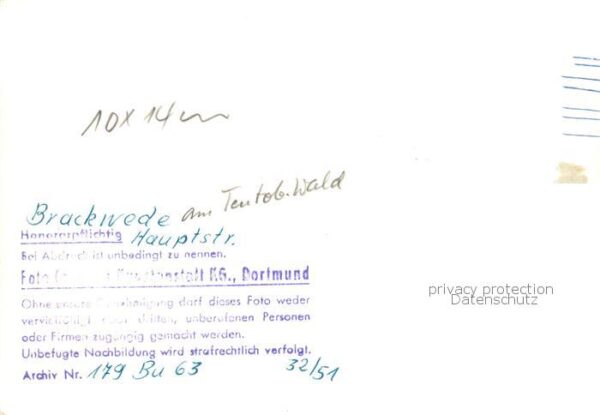 10 x 14 cm
Brackwede am Teutob. Wald
Honorarpflichtig Hauptstr.
Bei Abdruck ist unbedingt zu nennen.
Foto Kunstanstalt KG., Dortmund
Ohne unsere Genehmigung darf dieses Foto weder
vervielfältigt noch dritten, unberufenen Personen
oder Firmen zugängig gemacht werden.
Unbefugte Nachbildung wird strafrechtlich verfolgt.
Archiv Nr. 179 Bu 63 32/51
privacy protection
Datenschutz